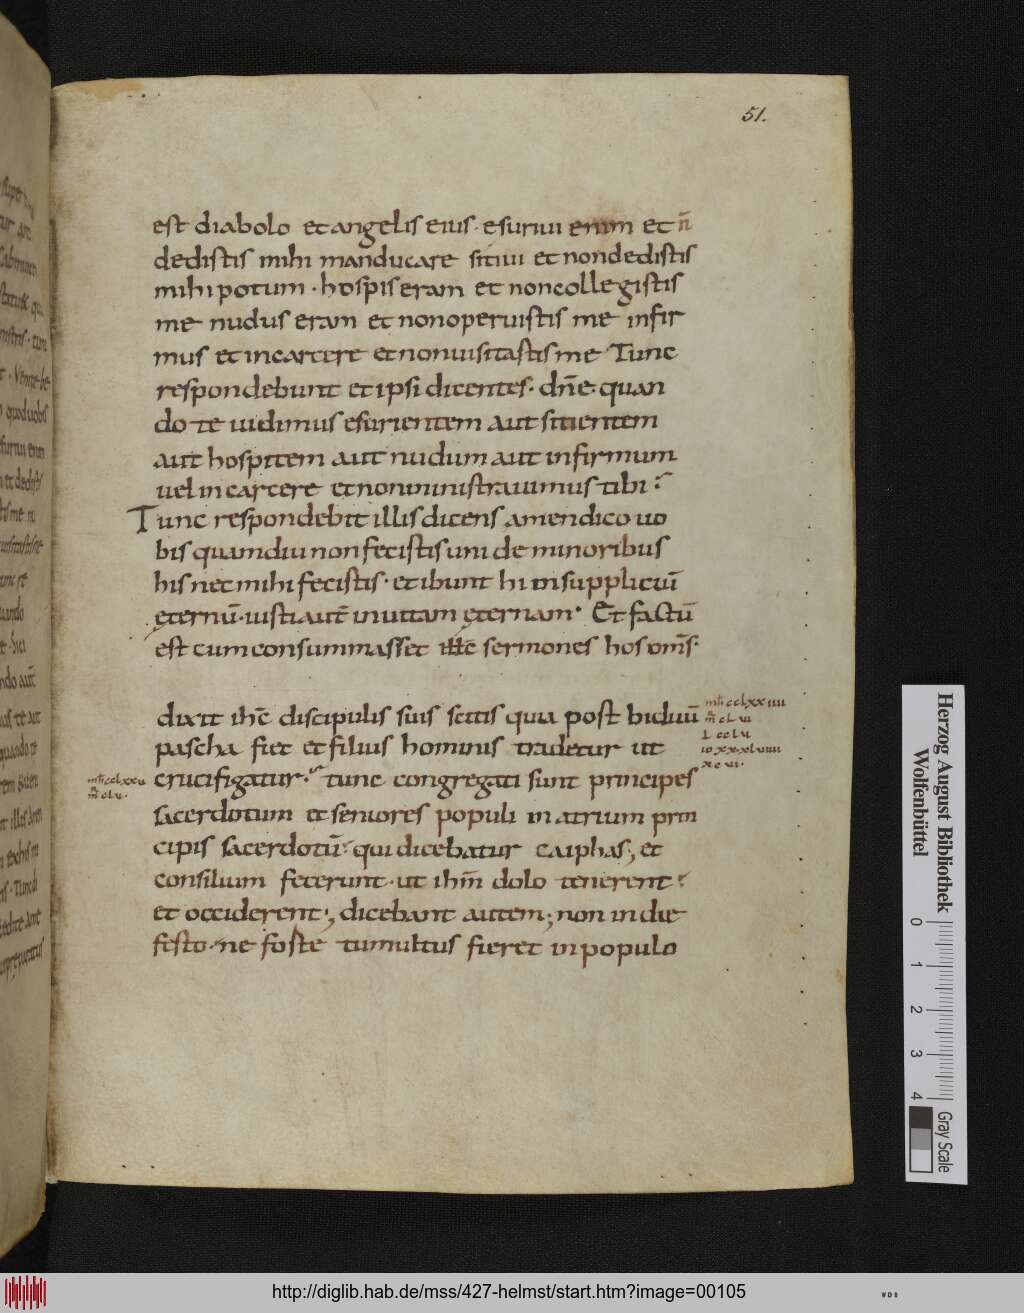 51.
est diabolo et angelis eius · esuriui enim et n̄
dedistis mihi manducare sitiui et non dedistis
mihi potum · hospis eram et non collegistis
me nudus eram et non operuistis me infir
mus et in carcere et non uisitastis me Tunc
respondebunt et ipsi dicentes · dn̄e · quan
do te uidimus esurientem aut sitientem
aut hospitem aut nudum aut infirmum
uel in carcere et non ministrauimus tibi ·
Tunc respondebit illis dicens amen dico uo
bis quamdiu non fecistis uni de minoribus
his nec mihi fecistis · et ibunt hi in suppliciū
ęternū · iusti aut̄ in uitam ęternam · Et factū
est cum consummasset ihc̄ sermones hos om̄s ·
dixit ihc̄ discipulis suis scitis quia post biduū
pascha fiet et filius hominis tradetur ut
crucifigatur · tunc congregati sunt principes
sacerdotum et seniores populi in atrium prin
cipis sacerdotū · qui dicebatur caiphas; et
consilium fecerunt · ut ihm̄ dolo tenerent ·
et occiderent; dicebant autem; non in die
festo · ne forte tumultus fieret in populo
Herzog August Bibliothek
Wolfenbüttel
0 1 2 3 4
Gray Scale
http://diglib.hab.de/mss/427-helmst/start.htm?image=00105